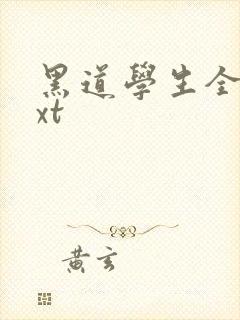 黑道學生全
xt
黃玄